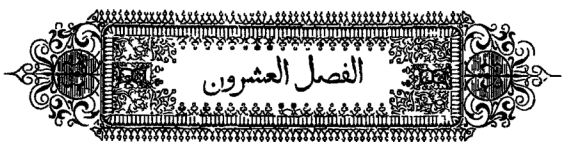 الفصل العشرون